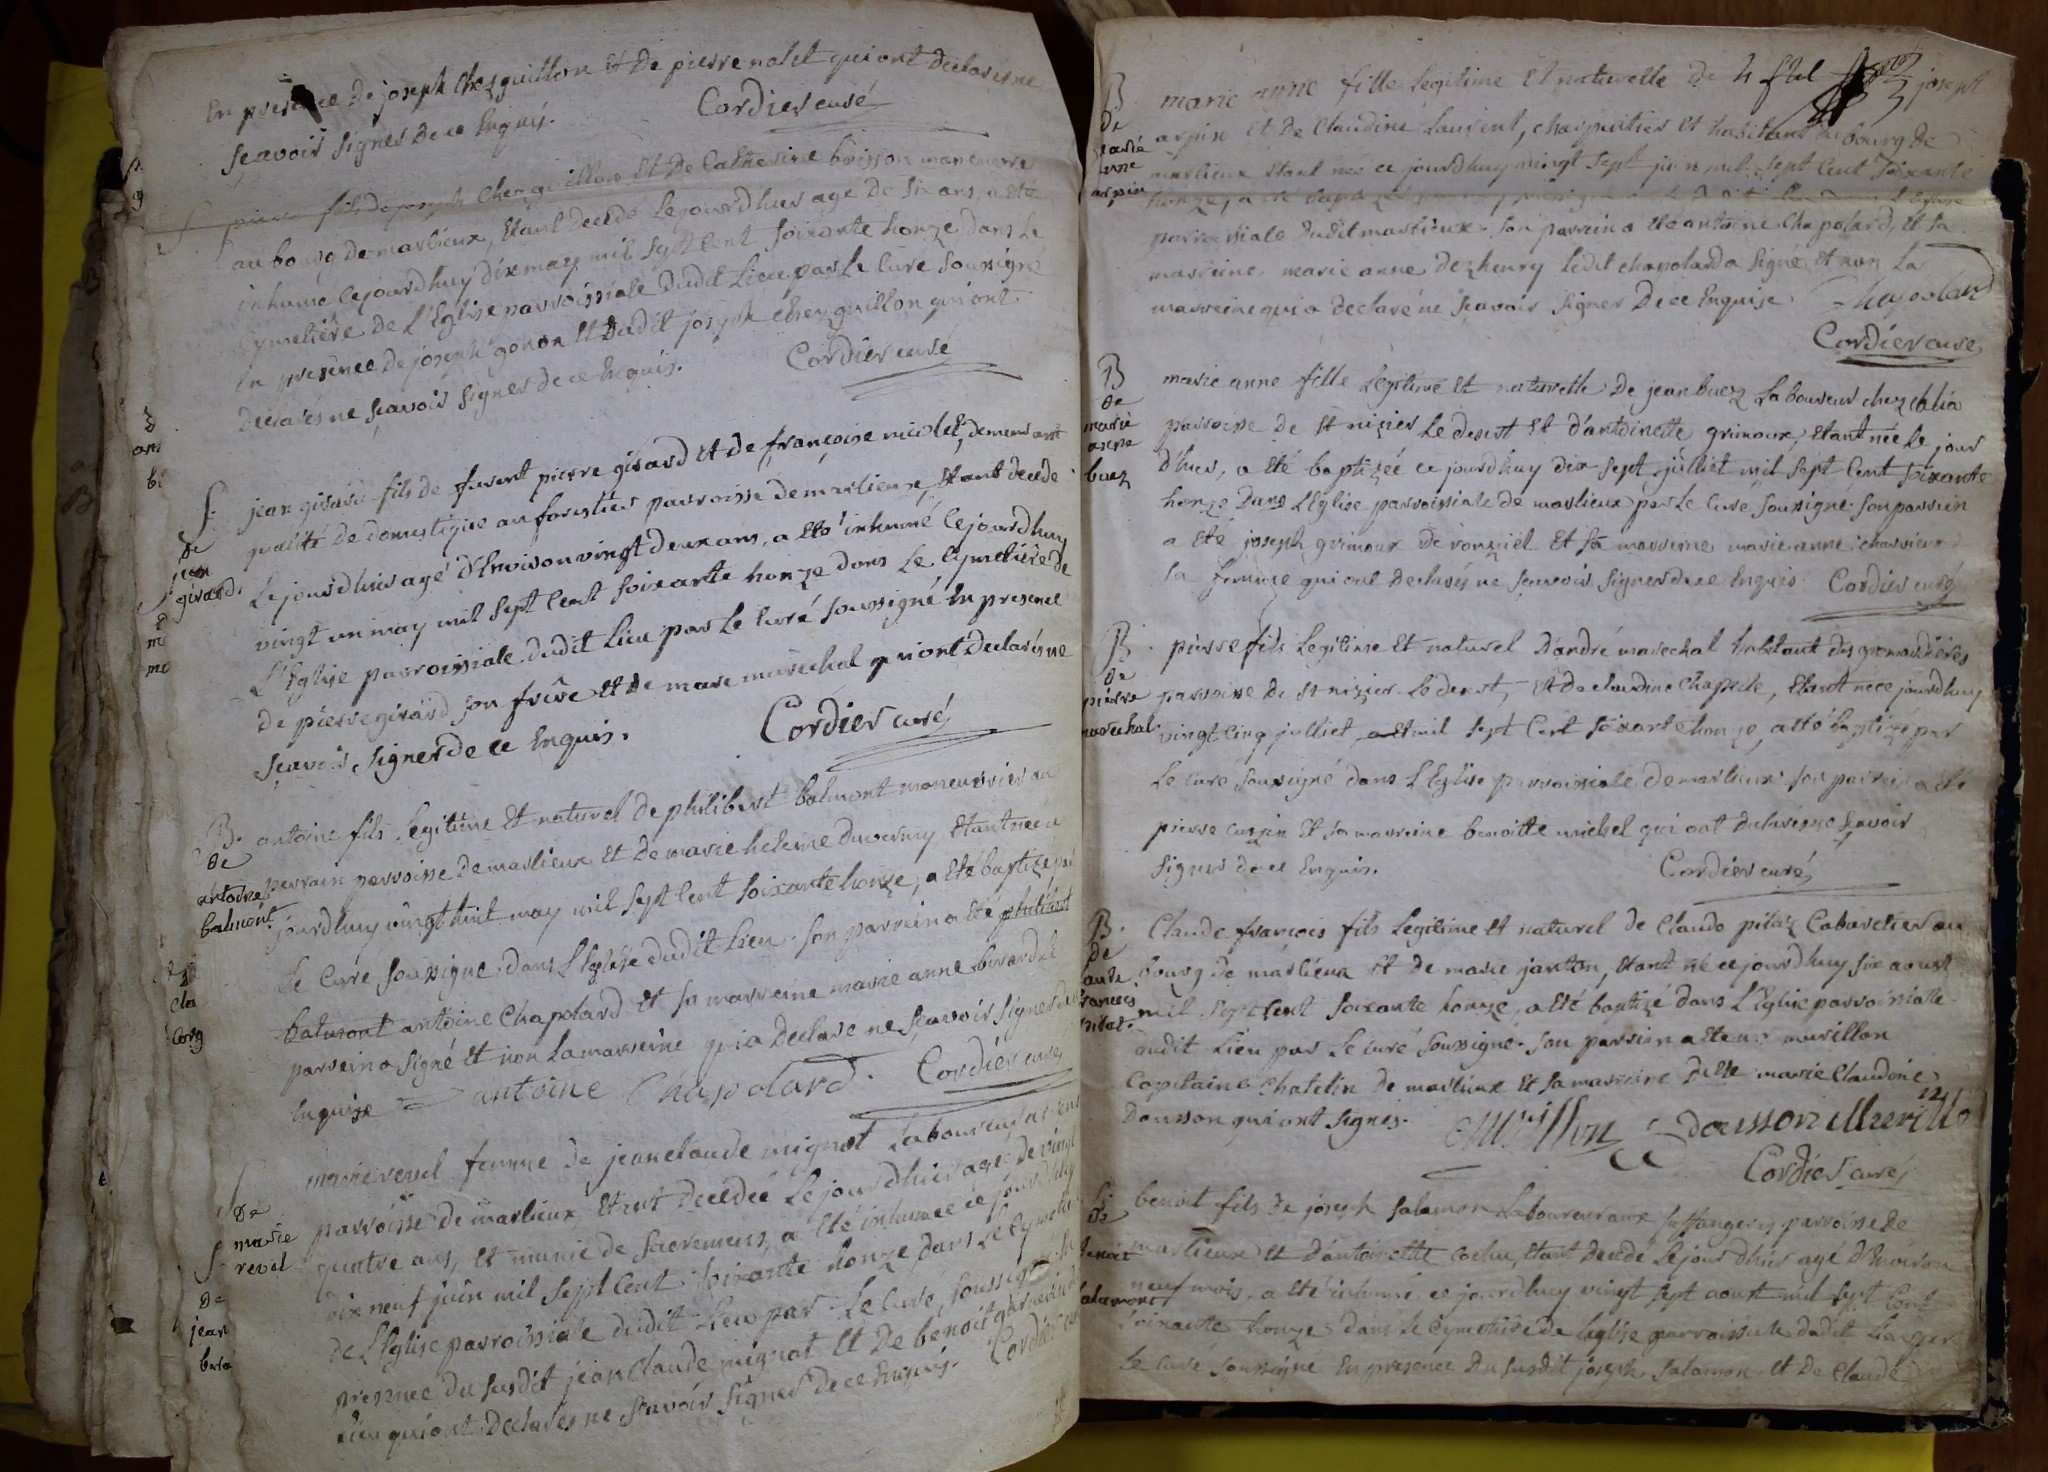 En presence de joseph Chezguillon Et de pierre nolet qui ont declarés ne
sçavoir signer de ce Enquis. Cordier curé
pierre fils de joseph Chezguillon Et de Catherine boisson manœuvre
au bourg de marlieux, Etant decedé le jour d'hier agé de six ans, a Eté
inhumé cejourdhuy dix may mil sept Cent soixante honze dans le
Cymetiére de L'Eglise parroissiale dudit Lieu par le Curé soussigné
En presence de joseph gonon Et dudit joseph Chezguillon qui ont
declarés ne sçavoir signer de ce Enquis. Cordier curé
S.
de
jean
girard.
jean girard fils de furent pierre girard et de françoise nicolet, demeurant
qualité de domestique au forestier parroisse de marlieux, Etant decedé
Le jour d'hier agé d'Environ vingt deux ans, a Eté inhumé Cejourdhuy
vingt un may mil sept Cent soixante honze dans le Cymetiére de
L'Eglise parroissiale dudit Lieu par Le Curé soussigné En presence
de pierre girard son frére et de marc maréchal qui ont declarés ne
sçavoir signer de ce Enquis. Cordier curé
B.
de
antoine
balmont.
antoine fils Legitime Et naturel de philibert balmont manœuvrier au
perrain parroisse de marlieux Et de marie heleine duvernay Etant né ce
jourdhuy vingt huit may mil sept Cent soixante honze, a Eté baptizé par
le Curé soussigné dans L'Eglise dudit Lieu. son parrein a Eté philibert
balmont antoine Chapolard Et sa marreine marie anne
parrein a signé Et non La marreine qui a declaré ne sçavoir signer de ce
Enquise antoine Chapolard. Cordier curé
S
de
marie
revel
marie revel femme de jean claude mignot Laboureur
parroisse de marlieux, Etant decedée Le jour d'hier agée de vingt
quatre ans, et munie de sacremens, a Eté inhumée ce jourdhuy
dix neuf juin mil sept Cent soixante honze dans Le Cymetiére
de L'Eglise parroissiale dudit Lieu par Le Curé soussigné En
presence du susdit jean Claude mignot Et de benoit
Lieu qui ont declarés ne sçavoir signer de ce Enquis. Cordier curé
B
de
marie
anne
arpin
marie anne fille Legitime Et naturelle de joseph
arpin Et de Claudine Laurent, charpentier et habitant au bourg de
marlieux Etant née ce jourdhuy vingt sept juin mil sept Cent soixante
honze, a été baptizée
parroissiale dudit marlieux. son parrein a Eté antoine Chapolard, Et sa
marreine marie anne dezhenry Ledit chapolard a signé Et non La
marreine qui a declaré ne sçavoir signer de ce Enquise. Chapolard
Cordier curé
B
de
marie
anne
buez
marie anne fille Legitime Et naturelle de jean buez Laboureur chez
parroisse de St nizier Le desert Et d'antoinette grimoux, Etant née Le jour
d'hier, a Eté baptizée ce jourdhuy dix sept julliet mil sept Cent soixante
honze dans L'Eglise parroissiale de marlieux par Le Curé soussigné. son parrein
a Eté joseph grimoux de Et sa marreine marie anne
sa femme qui ont declarés ne sçavoir signer de ce Enquis. Cordier curé
B.
de
pierre
marechal
pierre fils Legitime Et naturel d'andré marechal habitant des
parroisse de St nizier Le desert, Et de claudine Chapele, Etant né ce jourdhuy
vingt Cinq julliet mil sept Cent soixante honze, a Eté baptizé par
Le Curé soussigné dans L'Eglise parroissiale de marlieux son parrein a Eté
pierre curzin Et sa marreine benoitte michel qui ont declarés ne sçavoir
signer de ce Enquis. Cordier curé
B.
de
francois
pitaz.
Claude francois fils Legitime Et naturel de Claude pitaz Cabaretier au
bourg de marlieux Et de marie janton, Etant né ce jourdhuy six aoust
mil sept cent soixante honze, a Eté baptizé dans L'Eglise parroissialle
dudit Lieu par Le curé soussigné. son parrein a Eté murillon
Capitaine chatelin de marlieux Et sa marreine marie Claudine
dousson qui ont signés. dousson
Cordier curé
de
benoit
salamon
benoit fils de joseph salamon Laboureur aux parroisse de
marlieux Et d'antoinette Cochu, Etant decedé Le jour d'hier agé d'Environ
neuf mois, a Eté inhumé ce jourdhuy vingt sept aoust mil sept Cent
soixante honze dans Le Cymetiére de L'Eglise parroissiale dudit Lieu par
Le Curé soussigné En presence du susdit joseph salamon Et de Claude